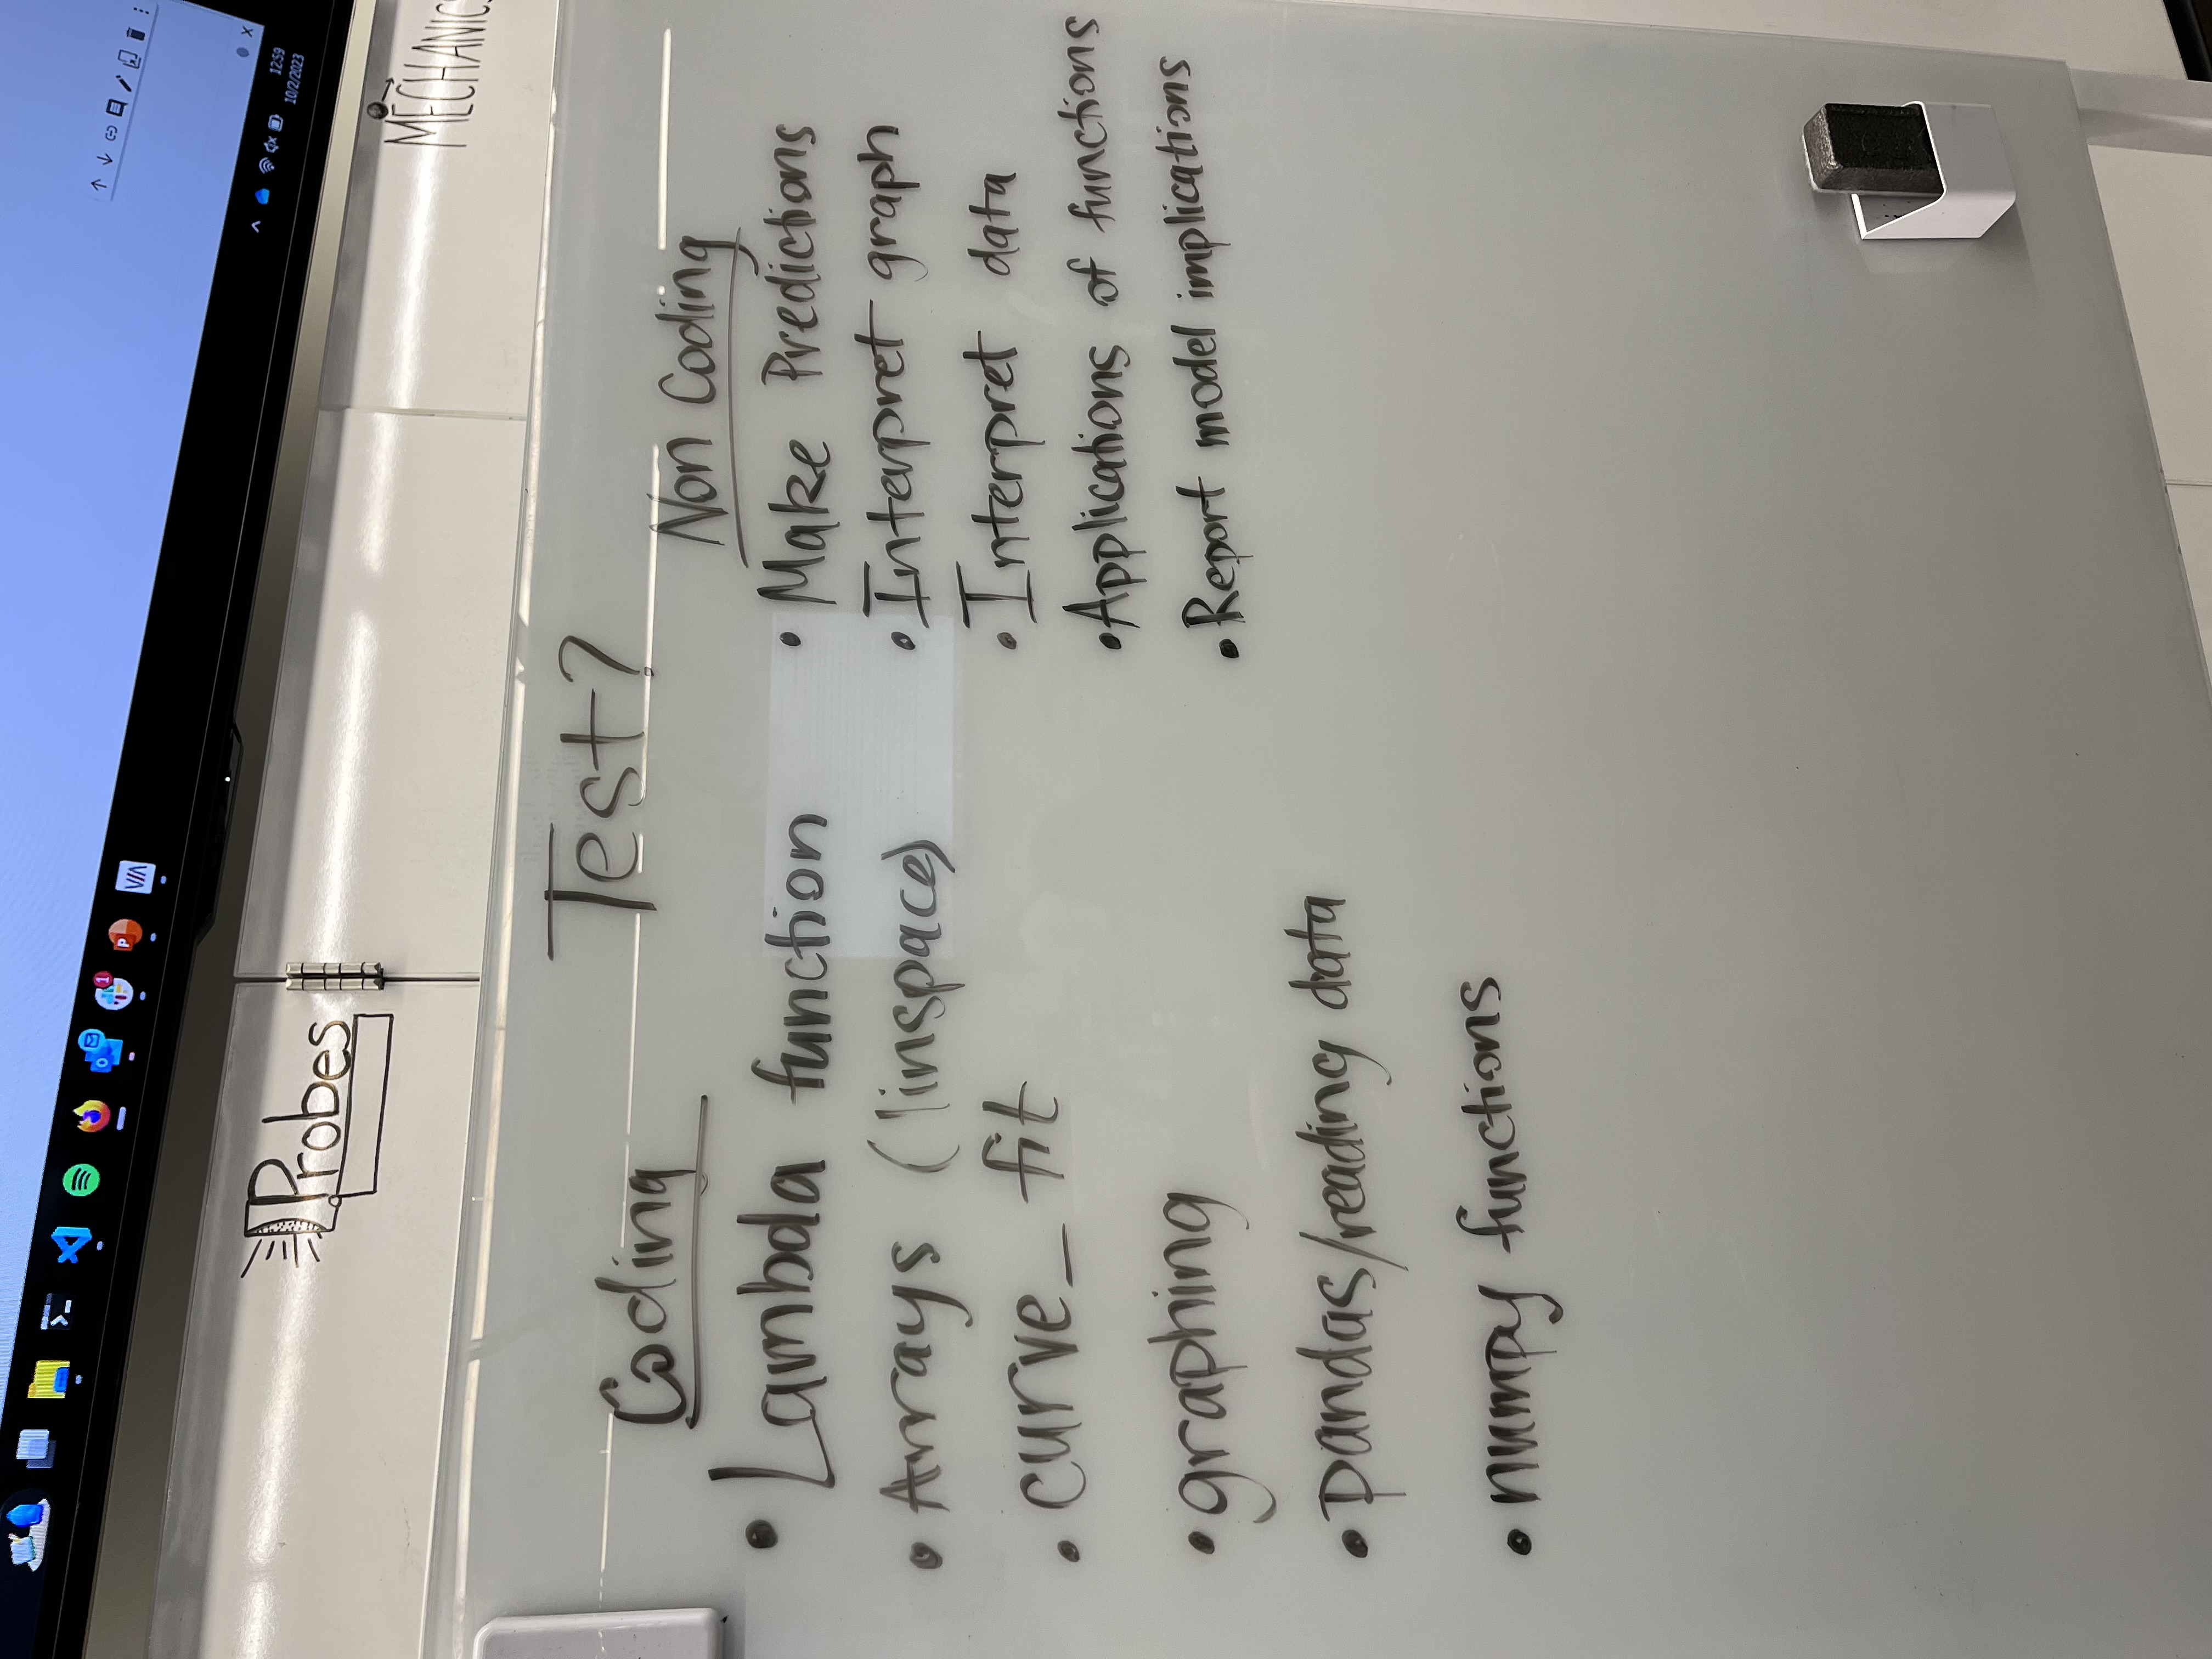 1
P
VIA
12:59
10/2/2023
Probes
MECHANICS
Test?
Coding
• Lambda function
• Arrays (linspace)
• curve_fit
• graphing
• pandas/reading data
• numpy functions
Non Coding
• Make Predictions
• Interpret graph
• Interpret data
• Applications of functions
• Report model implications